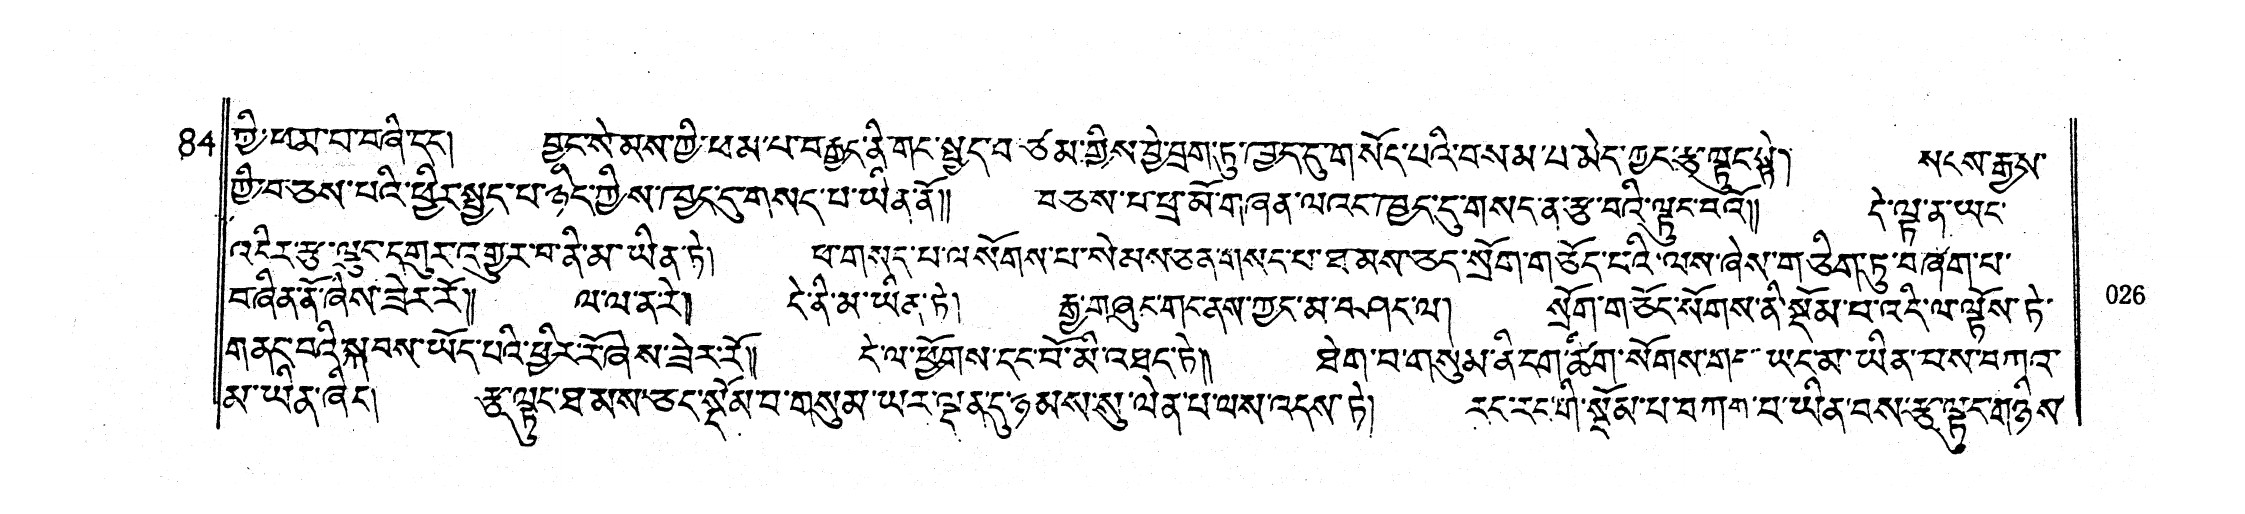 84 ཀྱི་ཕམ་པ་བཞི་དང༌། བྱང་སེམས་ཀྱི་ཕམ་པ་བརྒྱད་ནི་གང་སྤྱད་པ་ཙམ་གྱིས་བྱེ་བྲག་ཏུ་ཁྱད་དུ་གསོད་པའི་བསམ་པ་མེད་ཀྱང་རྩ་ལྟུང་སྟེ། སངས་རྒྱས་
ཀྱི་བཅས་པའི་ཕྱིར་སྤྱད་པ་ཉིད་ཀྱིས་ཁྱད་དུ་གསད་པ་ཡིན་ནོ།། བཅས་པ་ཕྲ་མོ་གཞན་ལའང་ཁྱད་དུ་གསད་ན་རྩ་བའི་ལྟུང་བའོ།། དེ་ལྟ་ན་ཡང་
འདིར་རྩ་ལྟུང་དགུར་འགྱུར་བ་ནི་མ་ཡིན་ཏེ། ཕ་གསད་པ་ལ་སོགས་པ་སེམས་ཅན་གསད་པ་ཐམས་ཅད་སྲོག་གཅོད་པའི་ལས་ཞེས་གཅིག་ཏུ་བཞག་པ་
བཞིན་ནོ་ཞེས་ཟེར་རོ།། ལ་ལ་ན་རེ།། དེ་ནི་མ་ཡིན་ཏེ། རྒྱ་གཞུང་གང་ནས་ཀྱང་མ་བཤད་ལ། སྲོག་གཅོད་སོགས་ནི་སྡོམ་པ་འདི་ལ་ལྟོས་ཏེ་
གནང་བའི་སྐབས་ཡོད་པའི་ཕྱིར་རོ་ཞེས་ཟེར་རོ།། དེ་ལ་ཕྱོགས་དང་པོ་མི་འཐད་ཏེ།། ཐེག་པ་གསུམ་ནི་ངག་ཚིག་སོགས་གང་ཡང་མ་ཡིན་པས་བཀའ་
མ་ཡིན་ཞིང༌། རྩ་ལྟུང་ཐམས་ཅད་སྡོམ་པ་གསུམ་ཡར་ལྡན་དུ་ཉམས་སུ་ལེན་པ་ལས་འདས་ཏེ། རང་རང་གི་སྡོམ་པ་བཀག་པ་ཡིན་པས་རྩ་ལྟུང་གཉིས་
026